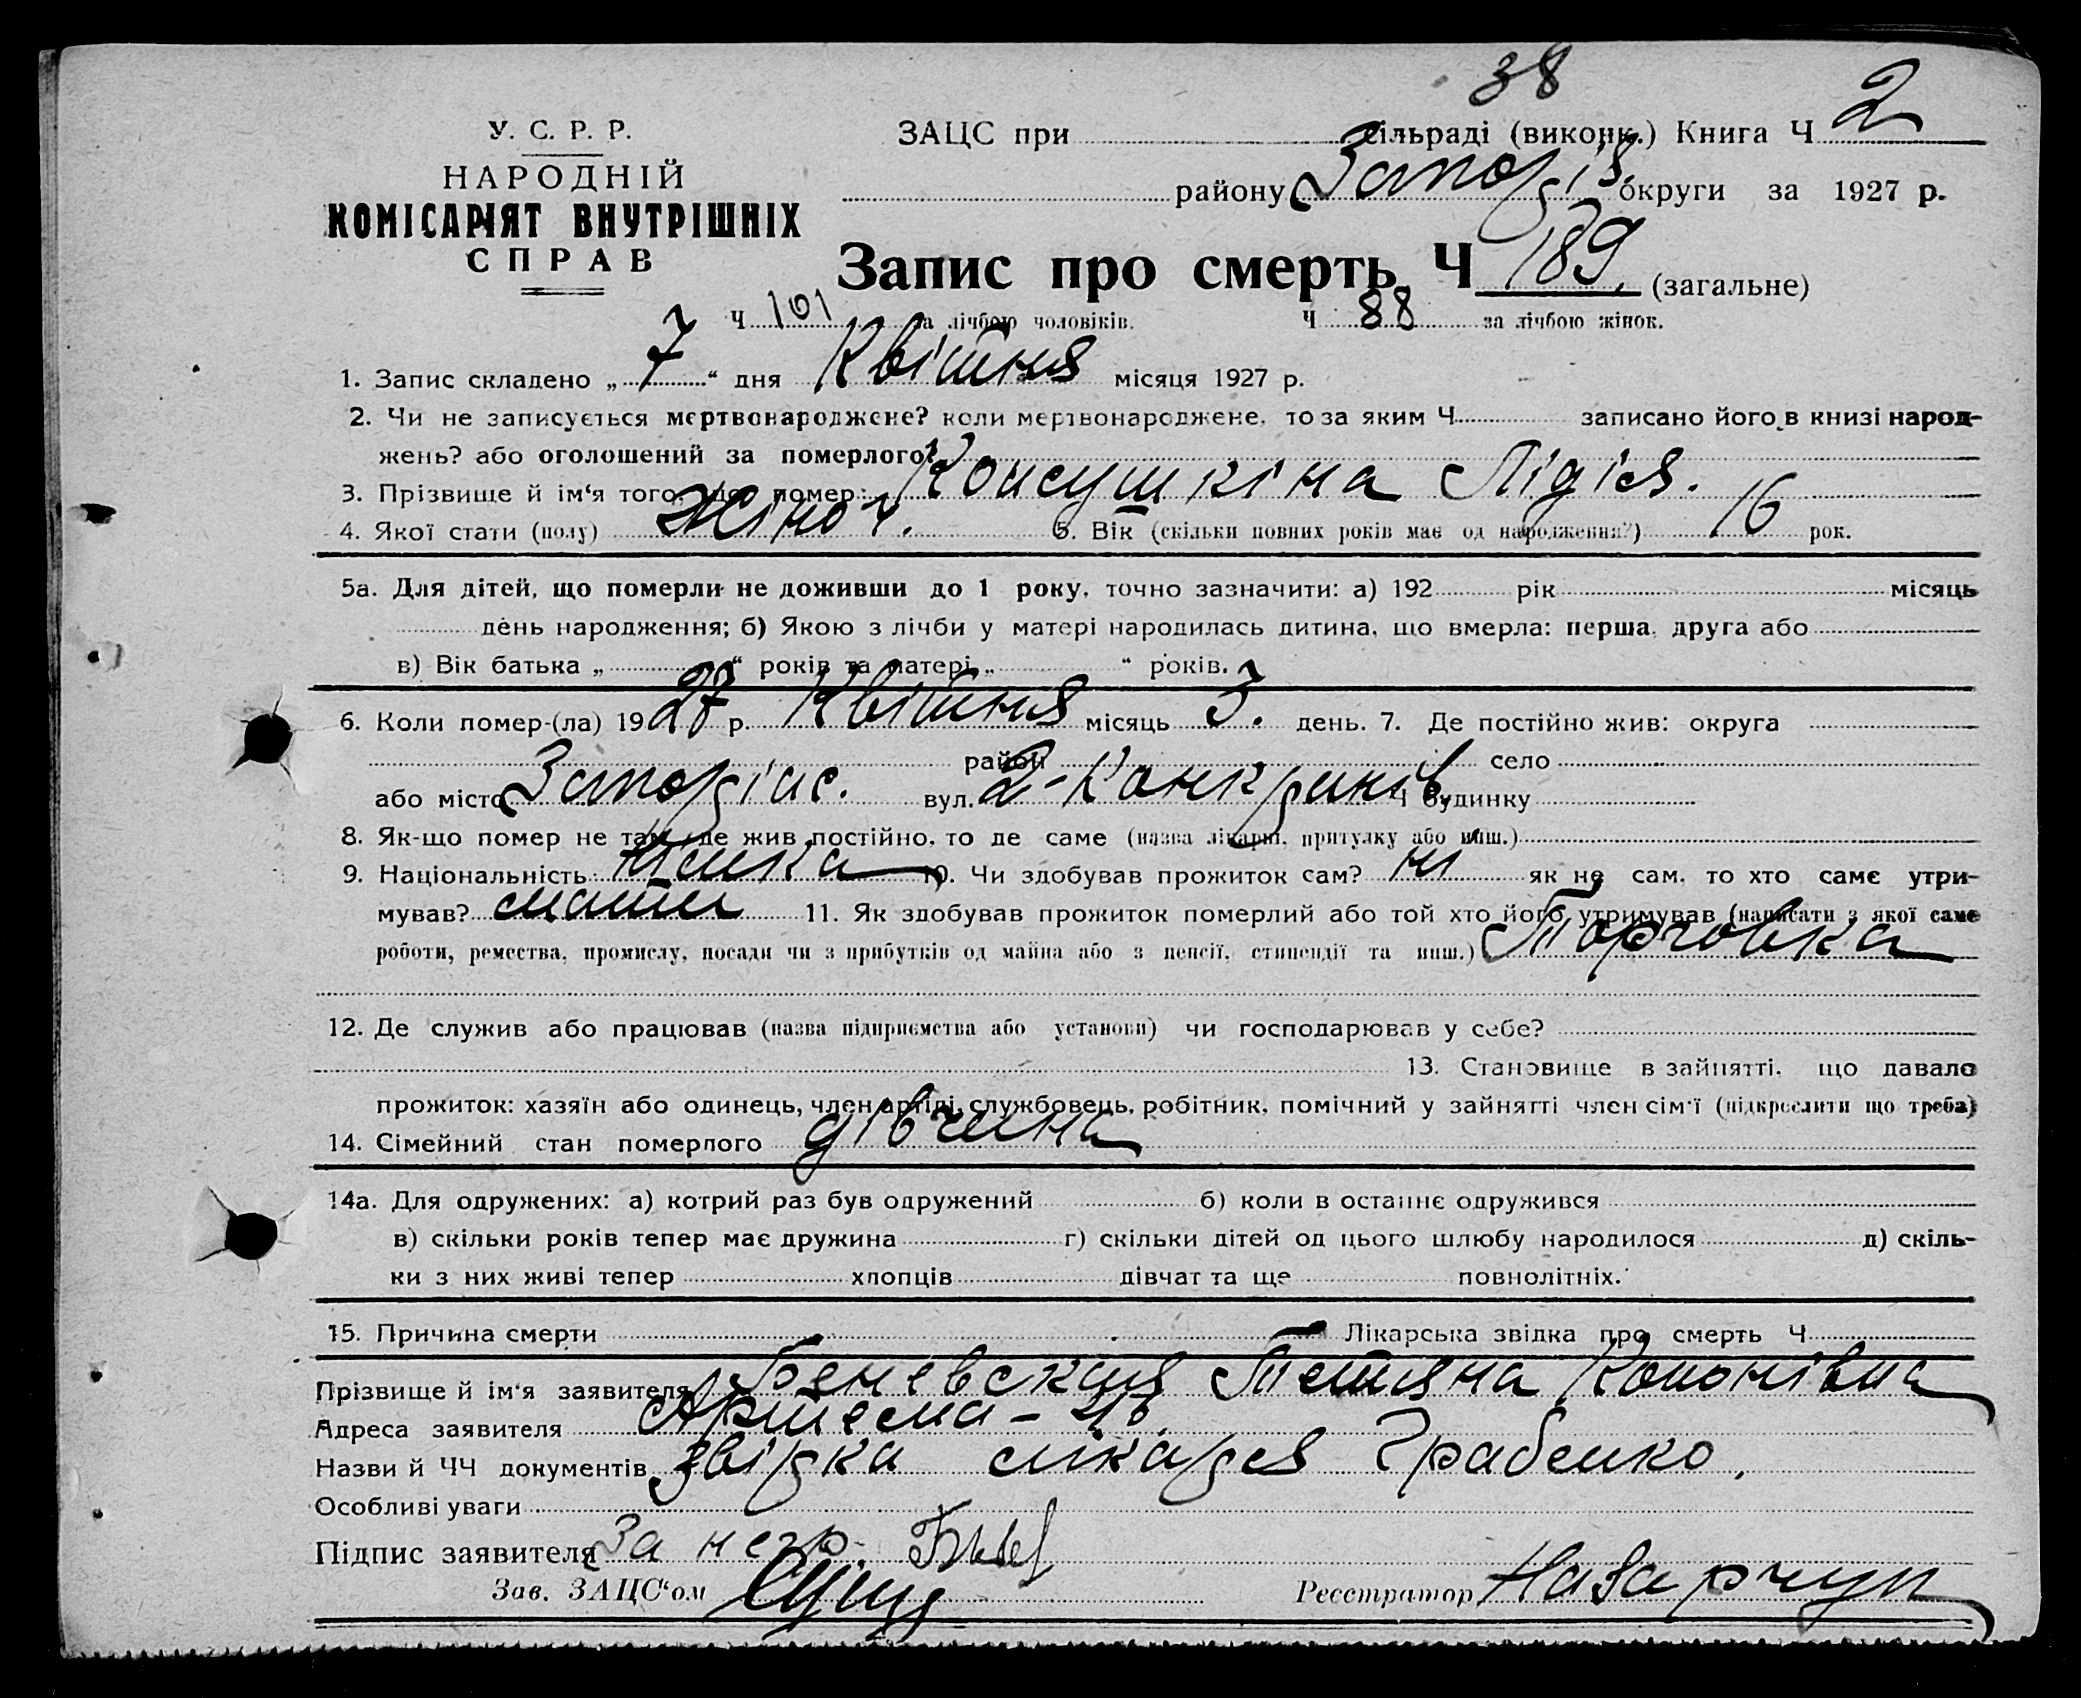 38
У. С. Р. Р.
НАРОДНІЙ
КОМІСАРІЯТ ВНУТРІШНІХ
СПРАВ
ЗАЦС при сільраді (виконк.) Книга Ч 2
району Запоріз. округи за 1927 р.
Запис про смерть Ч 189 (загальне)
Ч 101 за лічбою чоловіків. Ч 88 за лічбою жінок.
1. Запис складено „ 7 “ дня Квітня місяця 1927 р.
2. Чи не записується мертвонароджене? коли мертвонароджене, то за яким Ч записано його в книзі народ-
жень? або оголошений за померлого?
3. Прізвище й ім‘я того, що помер: Лідія.
4. Якої стати (полу) Жіноч. 5. Вік (скільки повних років має од народження?) 16 рок.
5а. Для дітей, що померли не доживши до 1 року, точно зазначити: а) 192 рік місяць
день народження; б) Якою з лічби у матері народилась дитина, що вмерла: перша, друга або
в) Вік батька „ “ років та матері „ “ років.
6. Коли помер-(ла) 1927 р. Квітня місяць 3. день. 7. Де постійно жив: округа
район село
або місто вул. 2-Канкринів. Ч будинку
8. Як-що помер не там, де жив постійно, то де саме (назва лікарні, притулку або инш.)
9. Національність: 10. Чи здобував прожиток сам? ні як не сам, то хто саме утри-
мував? мати 11. Як здобував прожиток померлий або той хто його утримував (написати з якої саме
роботи, ремества, промислу, посади чи з прибутків од майна або з пенсії, стипендії та инш.) Торговка
12. Де служив або працював (назва підприємства або установи) чи господарював у себе?
13. Становище в зайнятті, що давало
прожиток: хазяїн або одинець, член артілі, службовець, робітник, помічний у зайнятті член сім‘ї (підкреслити що треба)
14. Сімейний стан померлого дівчина
14а. Для одружених: а) котрий раз був одружений б) коли в останнє одружився
в) скільки років тепер має дружина г) скільки дітей од цього шлюбу народилося д) скіль-
ки з них живі тепер хлопців дівчат та ще повнолітніх.
15. Причина смерти Лікарська звідка про смерть Ч
Прізвище й ім‘я заявителя Тетяна
Адреса заявителя Артема –
Назви й ЧЧ документів звідка лікаря Грабенко.
Особливі уваги
Підпис заявителя За негр.
Зав. ЗАЦС‘ом Реєстратор Назарчук